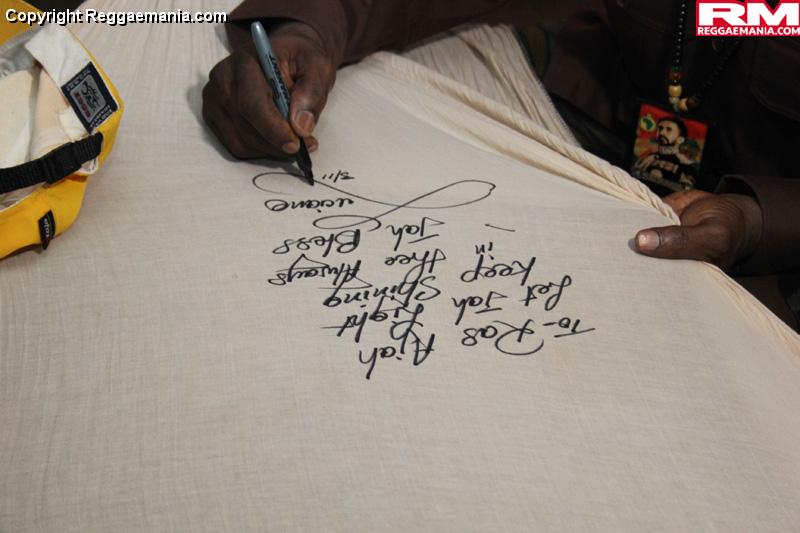 Copyright Reggaemania.com
RM
REGGAEMANIA.COM
To- Ras Ajah
Let Jah Light
Keep Shining
in thee Always
- Jah Bless
Luciano